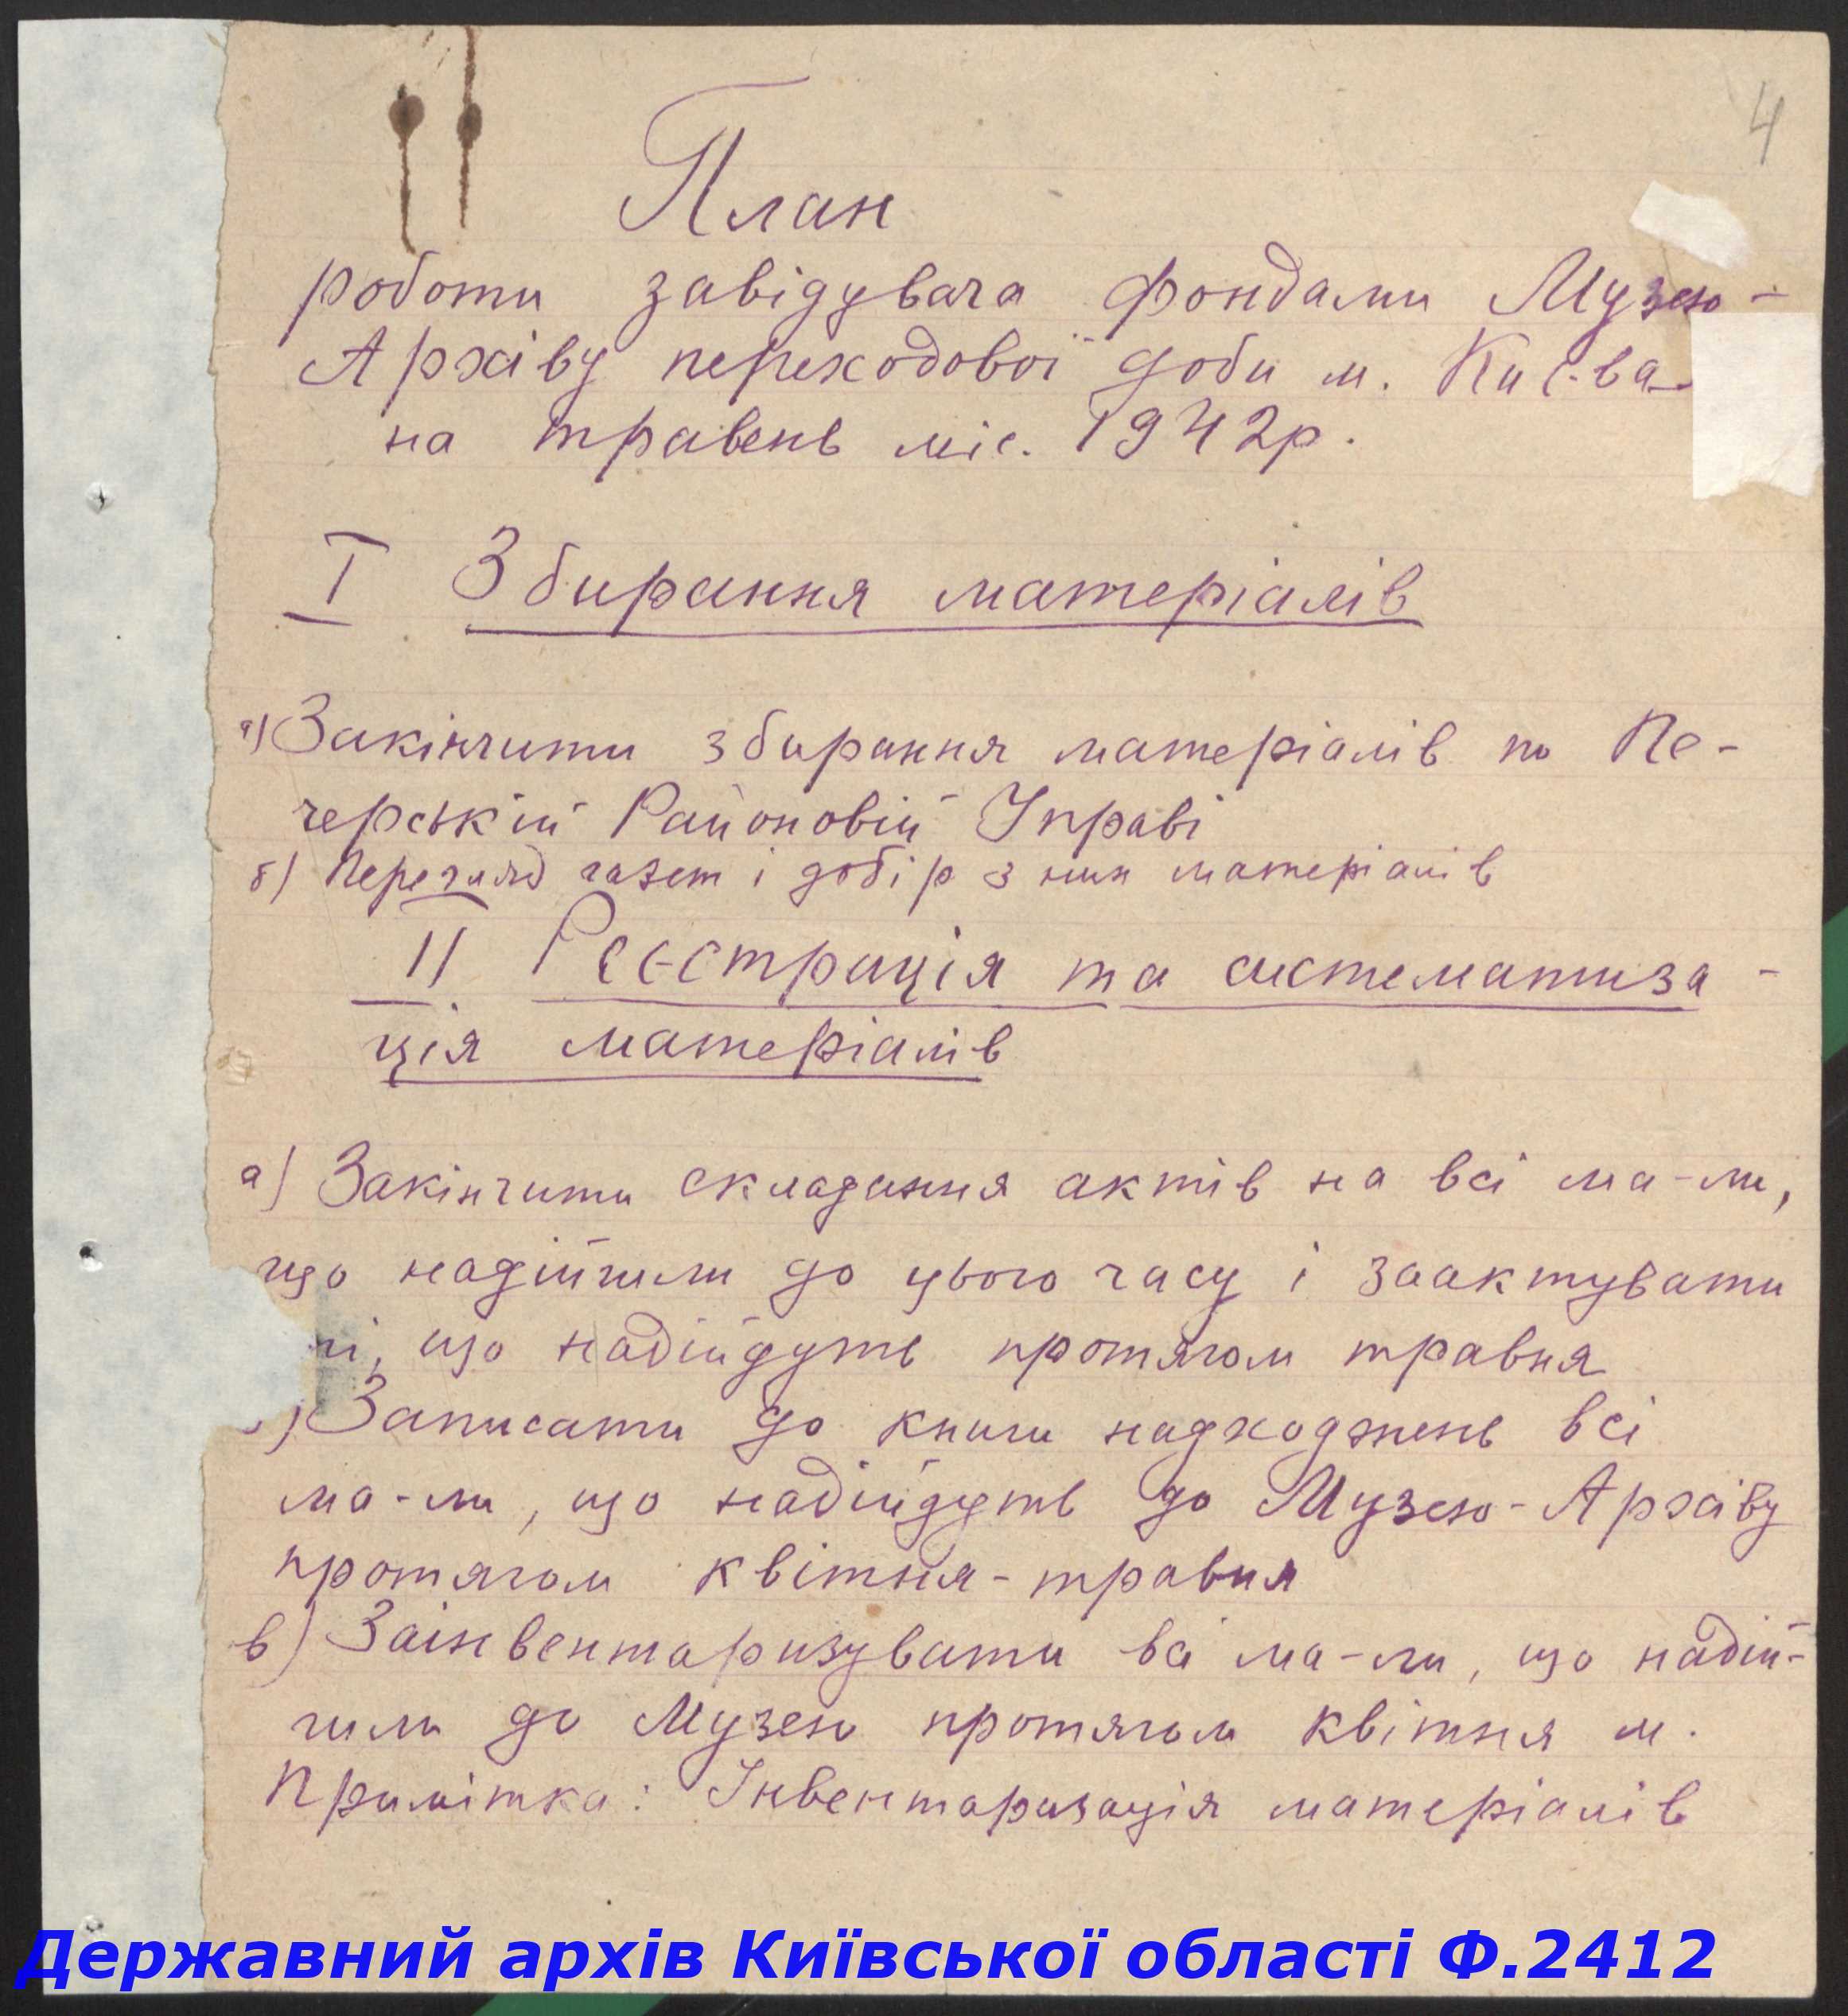 4
План
роботи завідувача фондами Музею-
Архіву переходової доби м. Києва
на травень міс. 1942р.
I Збирання матеріалів
а) Закінчити збирання матеріалів по Пе-
черській Районовій Управі
б) Перегляд газет і добір з них матеріалів
II Реєстрація та систематиза-
ція матеріалів
а) Закінчити складання актів на всі ма-ли,
що надійшли до цього часу і заактувати
ті, що надійдуть протягом травня
) Записати до книги надходжень всі
ма-ли, що надійдуть до Музею-Архіву
протягом квітня-травня
в) Заінвентаризувати всі ма-ли, що надій-
шли до Музею протягом квітня м.
Примітка: Інвентаризація матеріалів
Державний архів Київської області Ф.2412